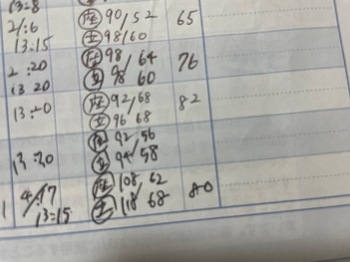 13:8 座 90/52 65
2/:6
13:15 立 98/60
2 :20 座 98/64 76
13 20 立 98 60
13:20 座 92/68 82
立 96 68
13:30 座 92/56
立 94/58
4/17 座 108/62 80
1 13:15 立 118/68